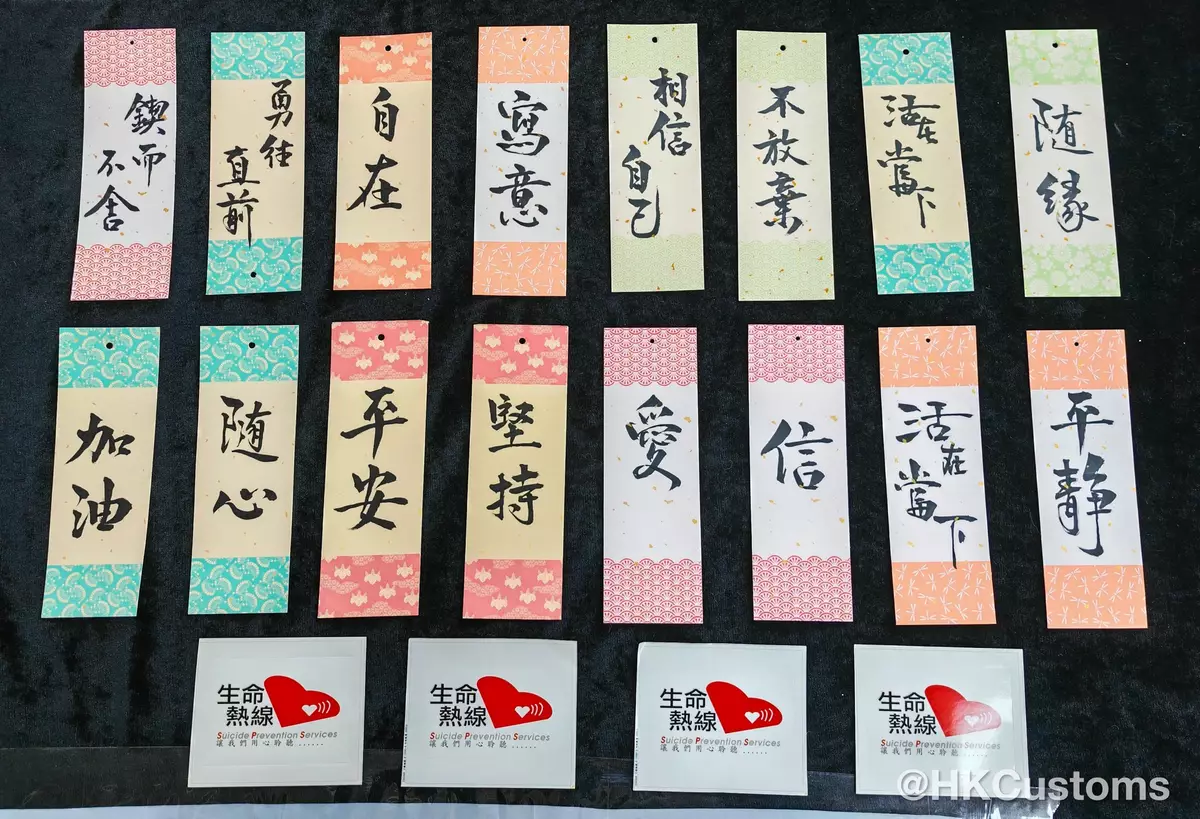 鍥而
不舍
勇往
直前
自在
寫意
相信
自己
不放棄
活在
當下
随緣
加油
随心
平安
堅持
愛
信
活在
當下
平静
生命
熱線
Suicide Prevention Services
讓我們用心聆聽......
生命
熱線
Suicide Prevention Services
讓我們用心聆聽......
生命
熱線
Suicide Prevention Services
讓我們用心聆聽......
生命
熱線
Suicide Prevention Services
讓我們用心聆聽......
@HKCustoms